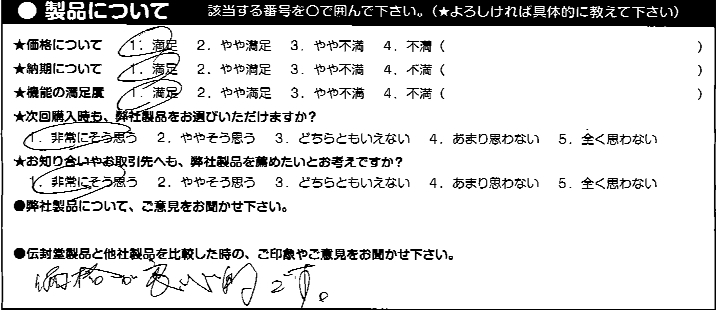 ● 製品について 該当する番号を○で囲んで下さい。(★よろしければ具体的に教えて下さい)
★価格について 1. 満足 2. やや満足 3. やや不満 4. 不満 ( )
★納期について 1. 満足 2. やや満足 3. やや不満 4. 不満 ( )
★機能の満足度 1. 満足 2. やや満足 3. やや不満 4. 不満 ( )
★次回購入時も、弊社製品をお選びいただけますか?
1. 非常にそう思う 2. ややそう思う 3. どちらともいえない 4. あまり思わない 5. 全く思わない
★お知り合いやお取引先へも、弊社製品を薦めたいとお考えですか?
1. 非常にそう思う 2. ややそう思う 3. どちらともいえない 4. あまり思わない 5. 全く思わない
●弊社製品について、ご意見をお聞かせ下さい。
●伝封堂製品と他社製品を比較した時の、ご印象やご意見をお聞かせ下さい。
価格が良心的です。